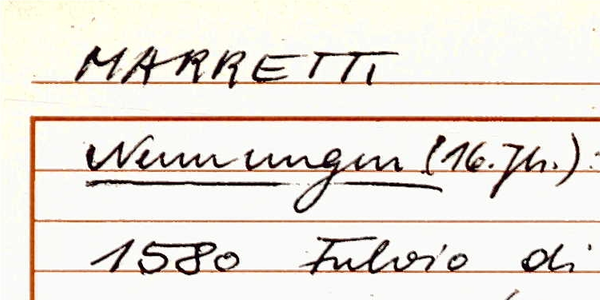 MARRETTI
Nennungen (16. Jh.):
1580 Fulvio di